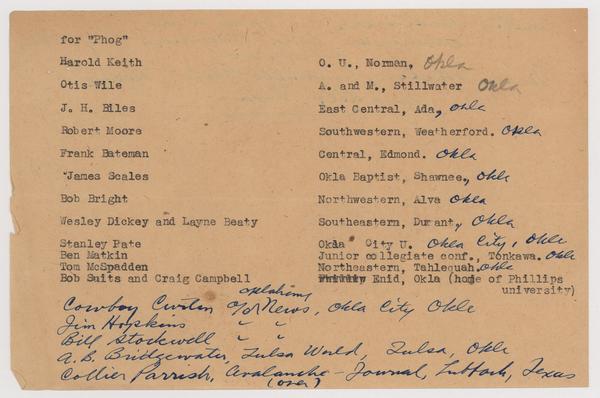 for "Phog"
Harold Keith O. U., Norman, Okla
Otis Wile A. and M., Stillwater Okla
J. H. Biles East Central, Ada, Okla
Robert Moore Southwestern, Weatherford. Okla
Frank Bateman Central, Edmond. Okla
James Scales Okla Baptist, Shawnee, Okla
Bob Bright Northwestern, Alva Okla
Wesley Dickey and Layne Beaty Southeastern, Durant, Okla
Stanley Pate Okla City U. Okla City, Okla
Ben Matkin Junior collegiate conf., Tonkawa. Okla
Tom McSpadden Northeastern, Tahlequah. Okla
Bob Suits and Craig Campbell Enid, Okla (home of Phillips
university)
Oklahoma
Cowboy c/o News, Okla City Okla
Jim Hopkins " "
Bill Stockwell " "
A.B. Bridgewater, Tulsa World, Tulsa, Okla
Collier Parrish, Avalanche-Journal, Lubbock, Texas
(over)